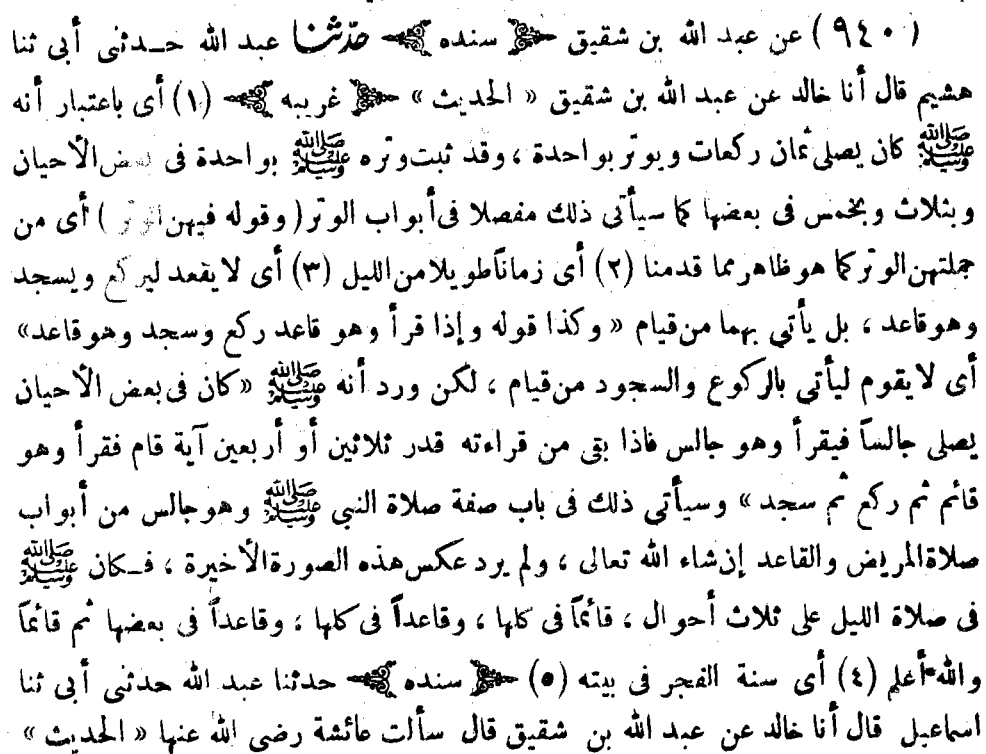 (٩٤٠) عن عبد الله بن شقيق ﴿ سنده ﴾ حدثنا عبد الله حدثنى أبى ثنا
هشيم قال أنا خالد عن عبد الله بن شقيق « الحديث » ﴿ غريبه ﴾ (١) أى باعتبار أنه
ﷺ كان يصلى ثمان ركعات ويوتر بواحدة ، وقد ثبت وتره ﷺ بواحدة فى بعض الأحيان
وبثلاث وبخمس فى بعضها كما سيأتى ذلك مفصلا فى أبواب الوتر ( وقوله فيهن الوتر ) أى من
جملتهن الوتر كما هو ظاهر مما قدمنا (٢) أى زماناً طويلا من الليل (٣) أى لا يقعد ليركع ويسجد
وهو قاعد ، بل يأتي بهما من قيام « وكذا قوله وإذا قرأ وهو قاعد ركع وسجد وهو قاعد»
أى لا يقوم ليأتي بالركوع والسجود من قيام ، لكن ورد أنه ﷺ «كان فى بعض الأحيان
يصلى جالساً فيقرأ وهو جالس فاذا بقى من قراءته قدر ثلاثين أو أربعين آية قام فقرأ وهو
قائم ثم ركع ثم سجد » وسيأتي ذلك فى باب صفة صلاة النبى ﷺ وهو جالس من أبواب
صلاة المريض والقاعد إن شاء الله تعالى ، ولم يرد عكس هذه الصورة الأخيرة ، فكان ﷺ
فى صلاة الليل على ثلاث أحوال ، قائماً فى كلها ، وقاعداً فى كلها ، وقاعداً فى بعضها ثم قائماً
والله أعلم (٤) أى سنة الفجر فى بيته (٥) ﴿ سنده ﴾ حدثنا عبد الله حدثنى أبى ثنا
اسماعيل قال أنا خالد عن عبد الله بن شقيق قال سألت عائشة رضى الله عنها « الحديث »